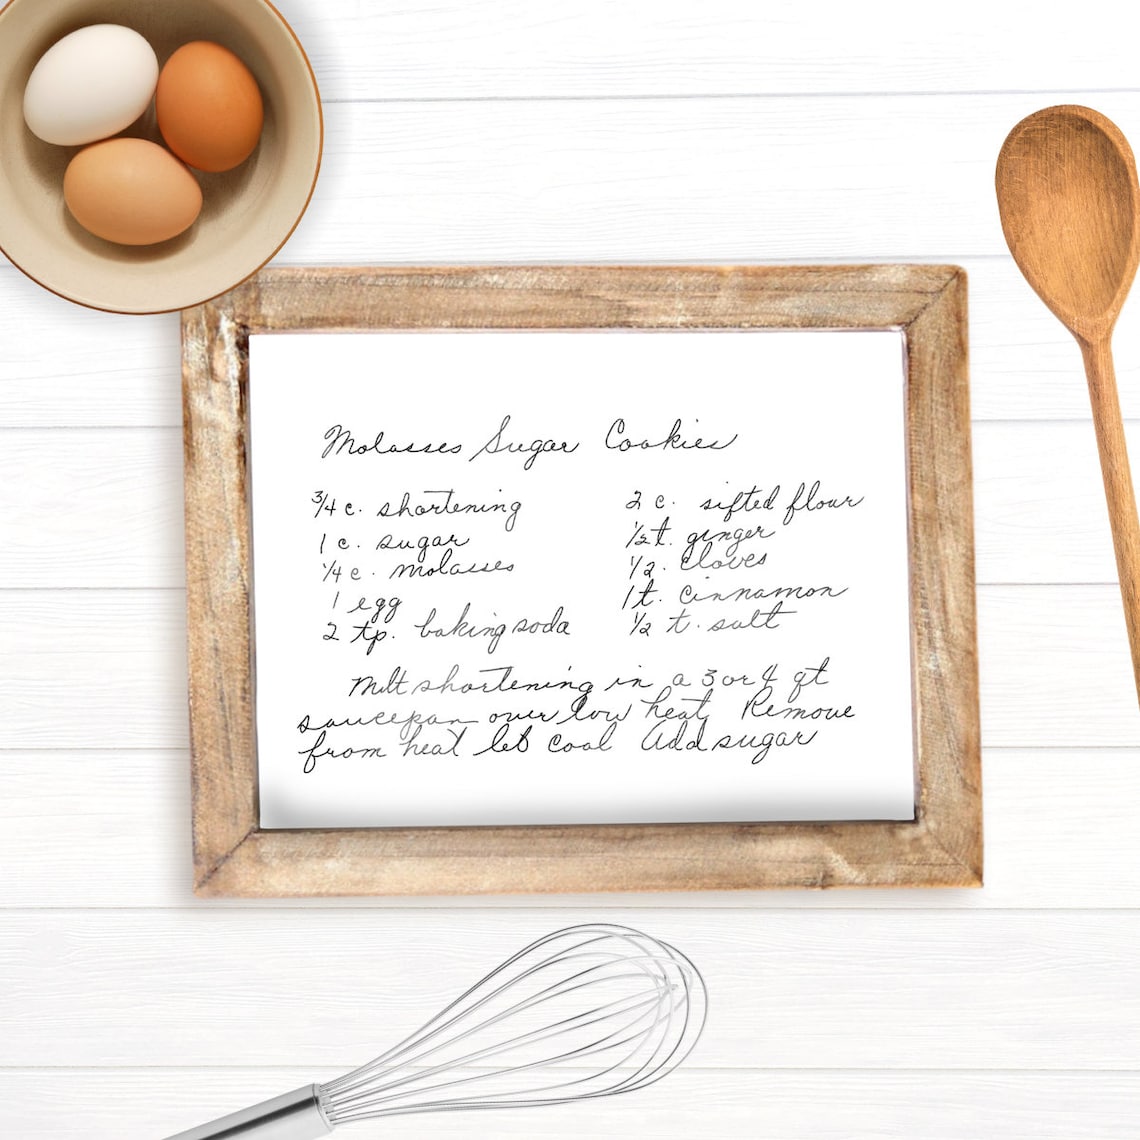 Molasses Sugar Cookies
3/4 c. shortening
1 c. sugar
1/4 c. molasses
1 egg
2 tp. baking soda
2 c. sifted flour
1/2 t. ginger
1/2. cloves
1 t. cinnamon
1/2 t. salt
Melt shortening in a 3 or 4 qt
saucepan over low heat Remove
from heat let cool Add sugar